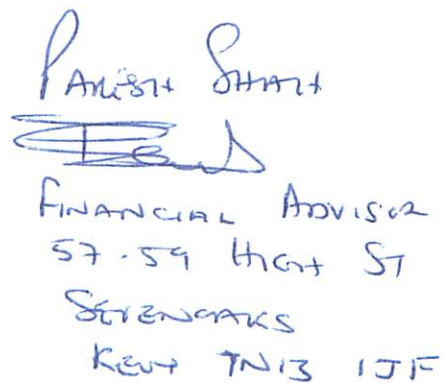 PARESH SHAH
FINANCIAL ADVISOR
57-59 HIGH ST
SEVENOAKS
KENT TN13 1JF